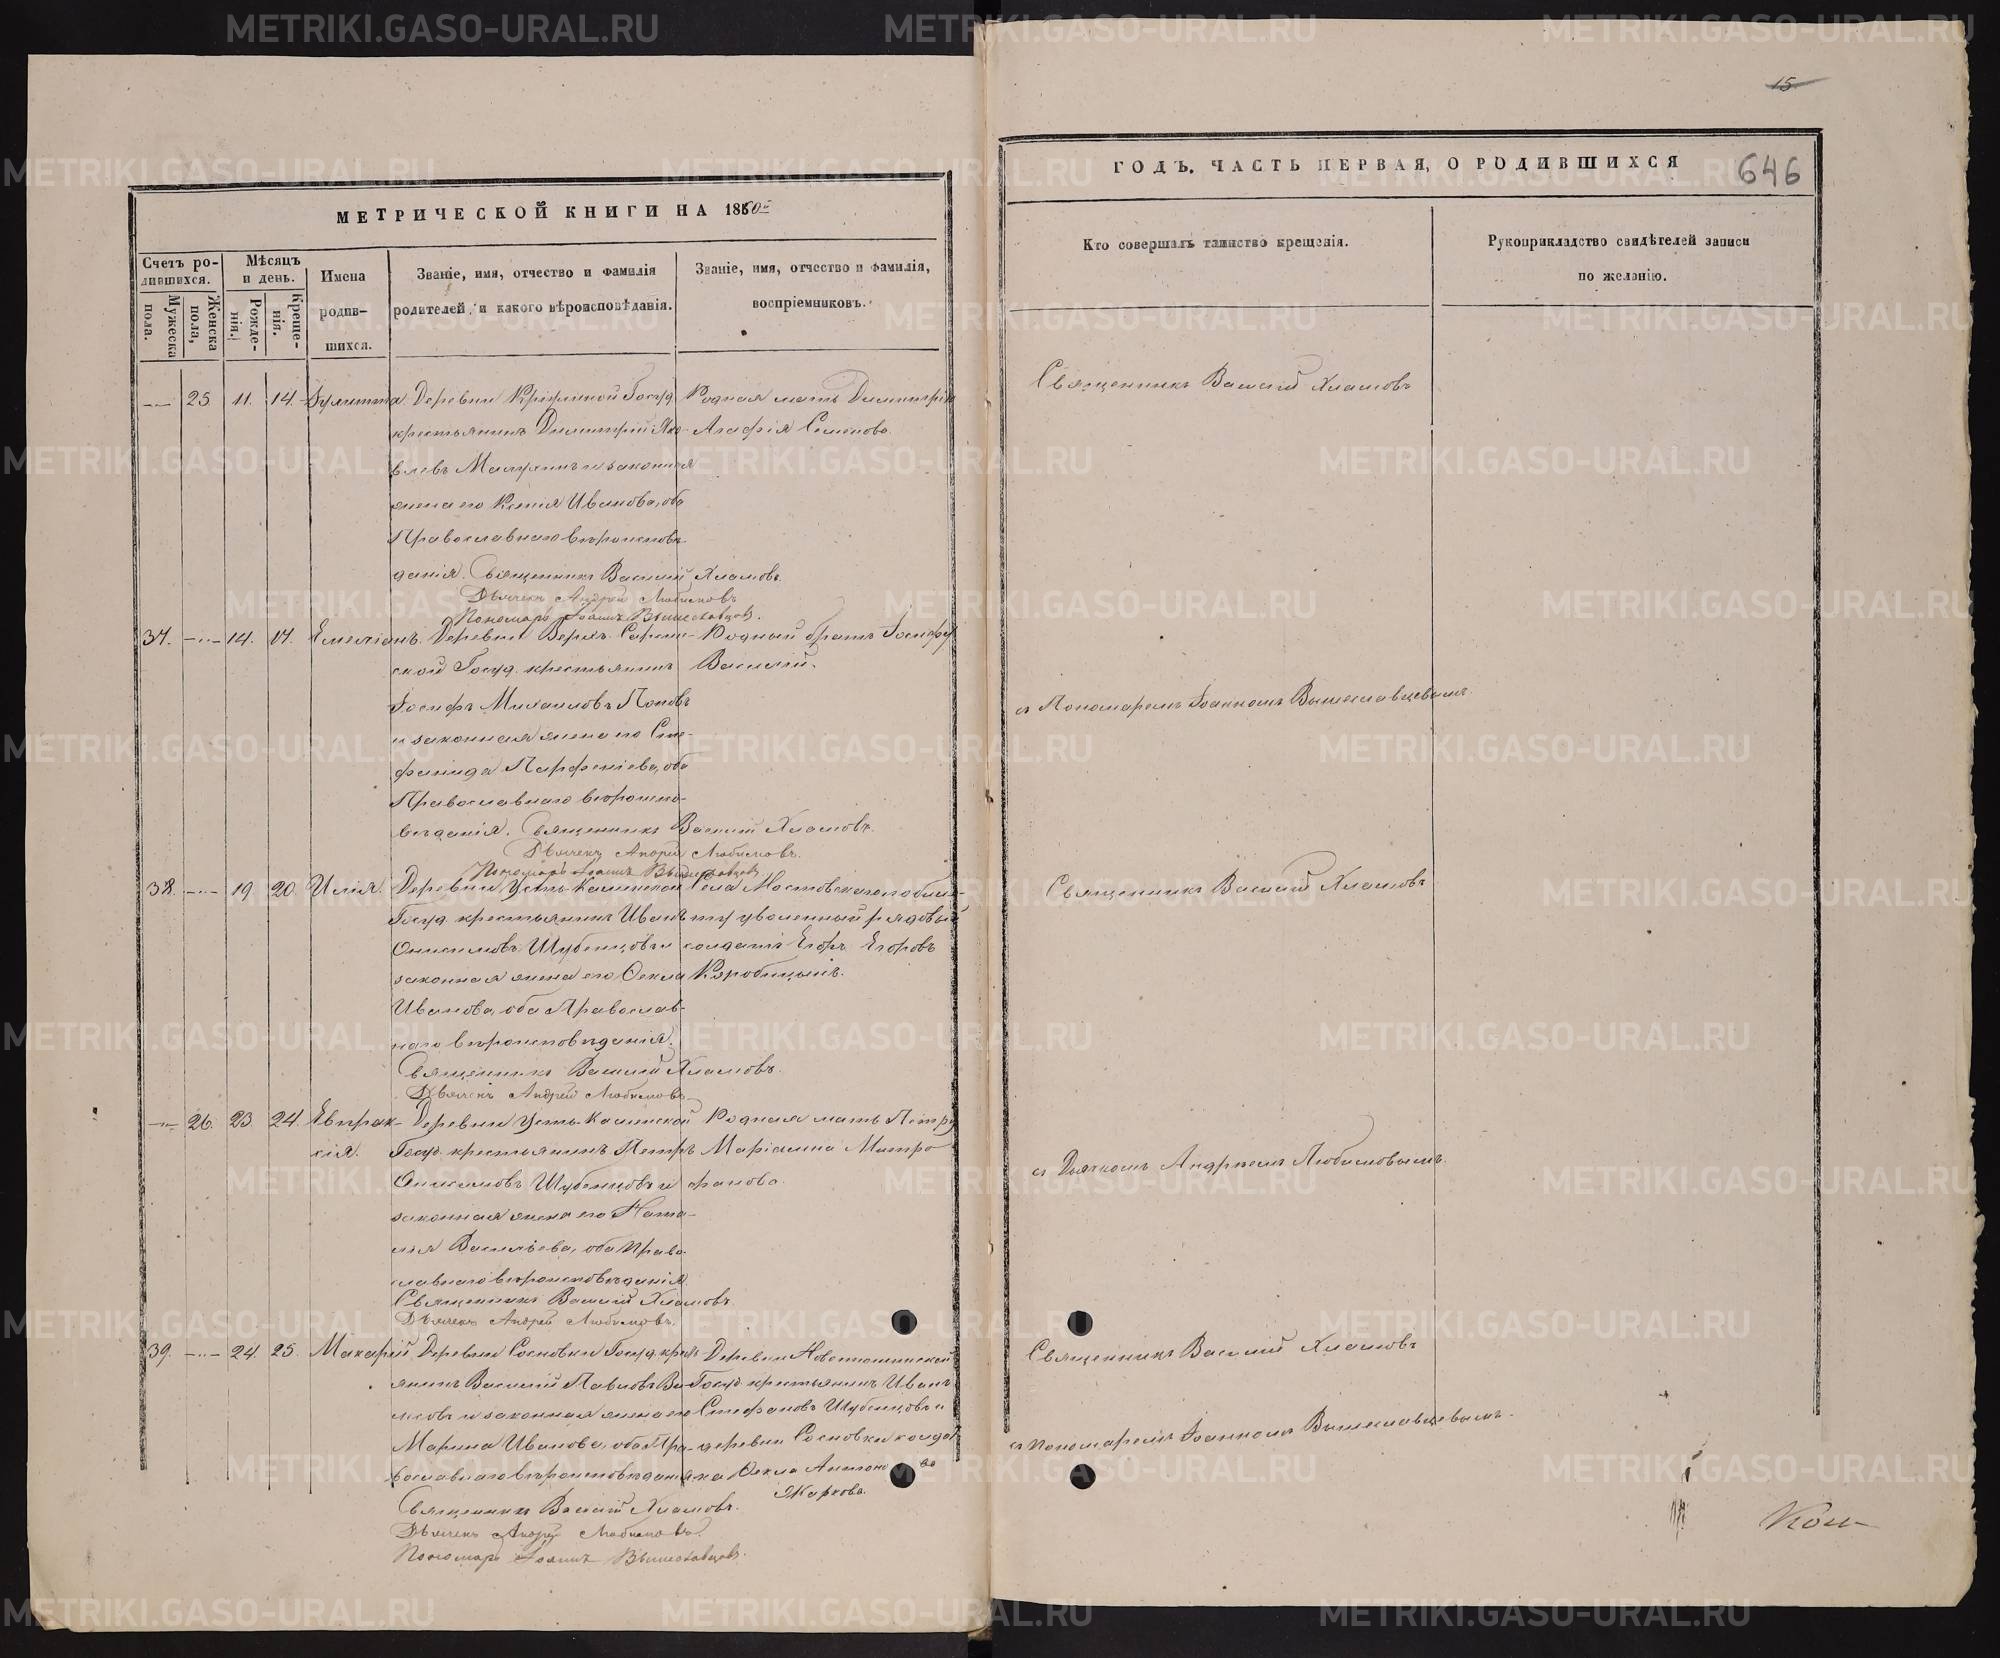 МЕТРИЧЕСКОЙ КНИГИ НА 1860й
Счетъ ро-
дившихся.
Мужеска пола.
Женска пола,
Мѣсяцъ
и день.
Рожде-
нія.
Креще-
нія.
Имена
родив-
шихся.
Званіе, имя, отчество и фамилія
родителей, и какого вѣроисповѣданія.
Званіе, имя, отчество и фамилія,
воспріемниковъ.
25 11. 14. Іулитта. Деревни Госуд.
крестьянинъ Димитрій Яко-
влевъ и законная
жена его Ксенія Иванова, оба
Православнаго вѣроисповѣ
данія. Священникъ Василій Хламовъ.
Дьячекъ Андрей Любимовъ
Пономарь Іоаннъ Вышеславцовъ.
Родная мать Димитрія
Агафія Семенова.
37. 14. 17. Емеліанъ. Деревни Верхъ-
ской Госуд. крестьянинъ
Іосифъ Михаиловъ Поповъ
и законная жена его Сте-
фанида Парфеніева, оба
Православнаго вѣроиспо-
вѣданія. Священникъ Василій Хламовъ.
Дьячекъ Андрей Любимовъ.
Пономарь Іоаннъ Вышеславцовъ.
Родный братъ Іосифу
Василій.
38. 19 20 Илія. Деревни Усть-Калинской
Госуд. крестьянинъ Иванъ
Онисимовъ Шубенцовъ и
законная жена его Ѳекла
Иванова, оба Православ-
наго вѣроисповѣданія.
Священникъ Василій Хламовъ.
Дьячекъ Андрей Любимовъ
Села Мостовскаго по били-
ту уволенный рядовый
солдатъ Егоръ Егоровъ
Коробицынъ.
26. 23. 24. Евпрак-
сія.
Деревни Усть-Калинской
Госуд. крестьянинъ Петръ
Онисимовъ Шубенцовъ и
законная жена его Ната-
лія Васильева, оба Право-
славнаго вѣроисповѣданія.
Священникъ Василій Хламовъ.
Дьячекъ Андрей Любимовъ.
Родная мать Петру
Маріамна Митро
фанова.
39. 24. 25. Макарій Деревни Сосновки Госуд. крест-
янинъ Василій Павловъ
и законная жена его
Марина Ивановa, оба Пра-
вославнаго вѣроисповѣданія
Священникъ Василій Хламовъ.
Дьячекъ Андрей Любимовъ.
Пономарь Іоаннъ Вышеславцовъ.
Деревни
Госуд. крестьянинъ Иванъ
Стефановъ Шубенцовъ и
деревни Сосновки солдат
ка Ѳекла Антонова
Жаркова.
15
ГОДЪ. ЧАСТЬ ПЕРВАЯ, О РОДИВШИХСЯ
646
Кто совершалъ таинство крещенія.
Рукоприкладство свидѣтелей записи
по желанію.
Священникъ Василій Хламовъ
съ Пономаремъ Іоанномъ Вышеславцевымъ.
Священникъ Василій Хламовъ
съ Дьячкомъ Андреемъ Любимовымъ.
Священникъ Василій Хламовъ
съ пономаремъ Іоанномъ Вышеславцевымъ.
METRIKI.GASO-URAL.RU